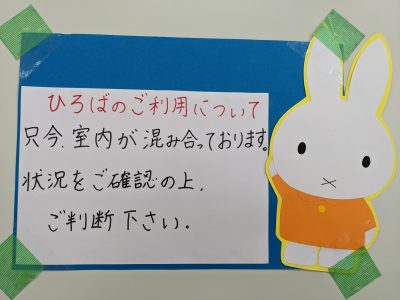 ひろばのご利用について
只今、室内が混み合っております。
状況をご確認の上、
ご判断下さい.